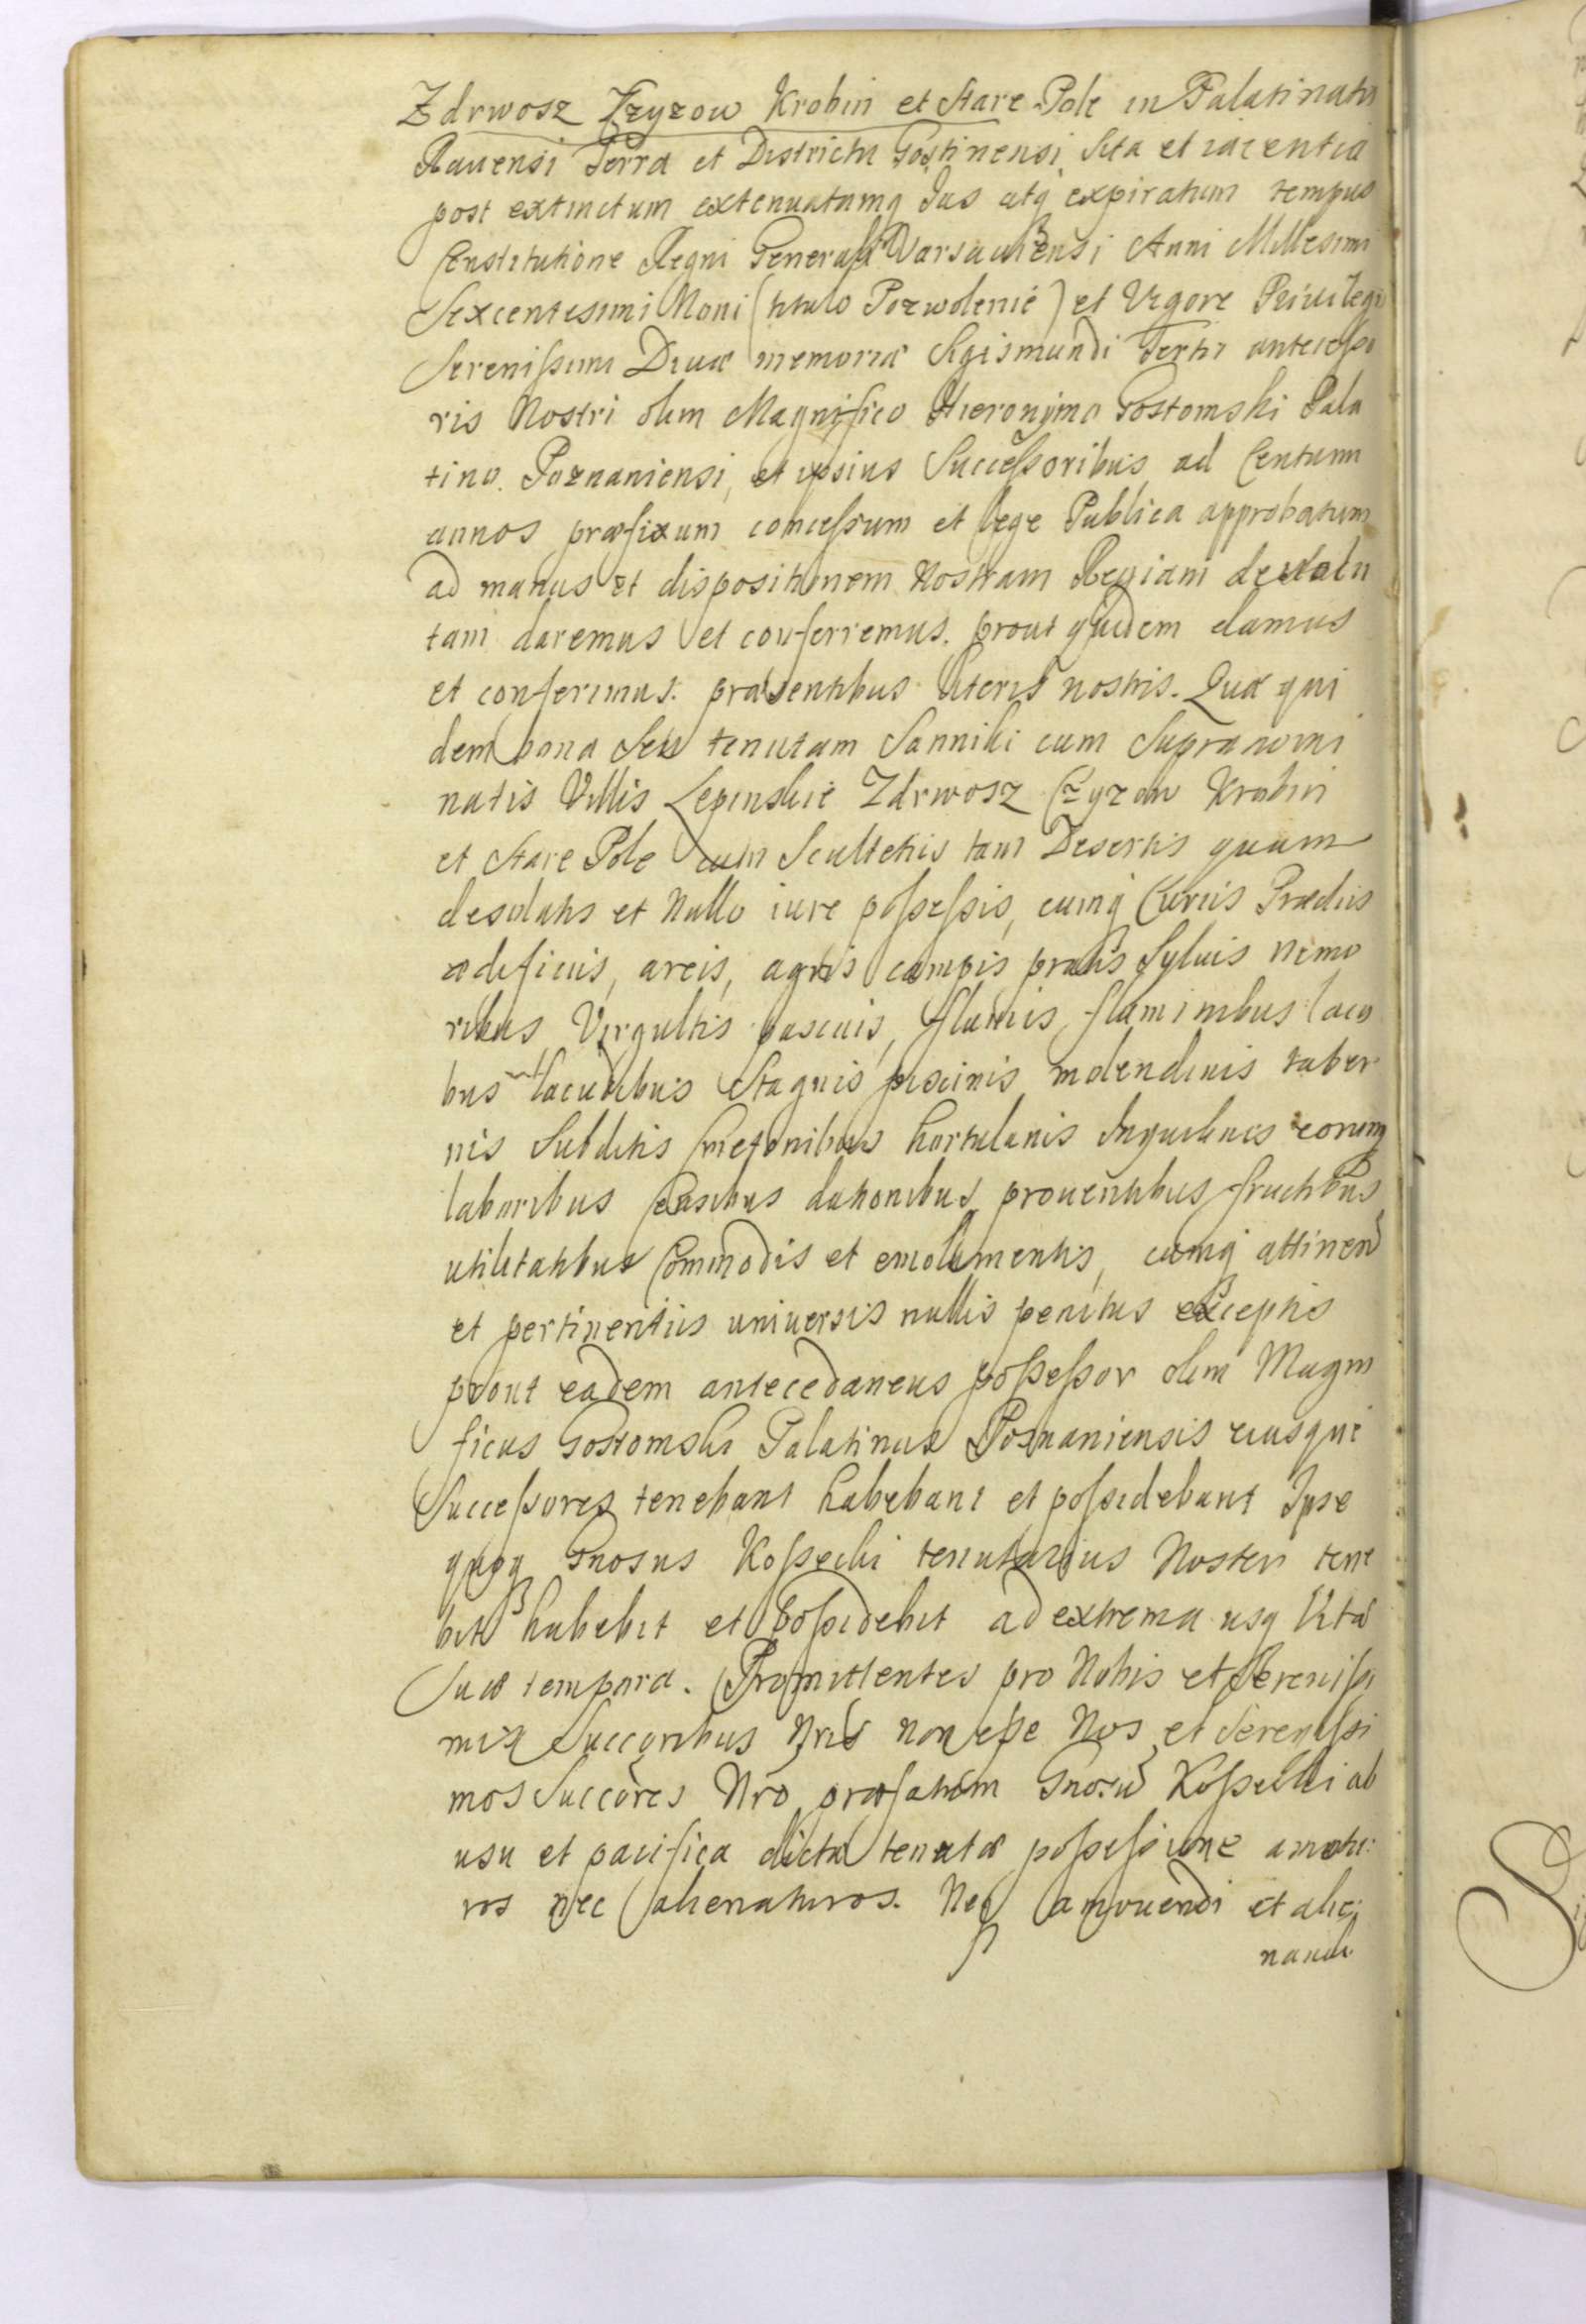 Zdrwosz Czyzow Krobin et Stare Pole in Palatinatu
Rauensi Terra et Districtu Gostinensi Sita et iacentia
post extinctum extenuatumq Ius atq expiratum tempus
Constitutione Regni Generali Varsauiensi Anni Millesimi
Sexcentesimi Noni (titulo Pozwolenie) et Vigore Priuilegi
Serenißimi Diuæ memoriæ Sigismundi Tertii anteceßo
ris Nostri olim Magnifico Hieronymo Gostomski Pala
tino Poznaniensi, et ipsius Succeßoribus ad Centum
annos præfixum conceßum et lege Publica approbatum
ad manus et dispositionem Nostram Regiam deuolu
tam daremus et conferremus. prout quidem damus
et conferimus. præsentibus literis nostris. Quæ qui
dem bona Seu tenutam Sanniki cum Supranomi
natis Villis Lepinskie Zdrwosz Czyzow Krobin
et Stare Pole cum Scultetiis tam Desertis quam
desolatis et Nullo iure poßeßis, cumq Curiis Prædiis
ædificiis, areis, agris campis pratis Syluis nemo
ribus Virgultis pascuis, fluuiis, fluminibus laco
bus lacubibus Stagnis piscinis molendinis taber
nis Subditis Cmetonibus hortulanis Inquilinis eorumq
laboribus Censibus dationibus prouentibus fructibus
utilitatibus Commodis et emolumentis, cumq attinen
et pertinentiis uniuersis nullis penitus exceptis
prout eadem antecedaneus poßeßor olim Magni
ficus Gostomski Palatinus Posnaniensis eiusque
Succeßores tenebant habebant et poßidebant Ipse
quoq Gnosus Koßecki tenutarius Noster tene
bit habebit et Poßidebit ad extrema usq Vitæ
Suæ tempora. Promittentes pro Nobis et Serenißi
mis Succoribus Nris non eße Nos et Serenißi
mos Succores Nro præfatum Gnosu Koßecki ab
usu et pacifica dictæ tenutæ poßeßione amotu:
ros nec alienaturos. Neq amouendi et alie:
nandi